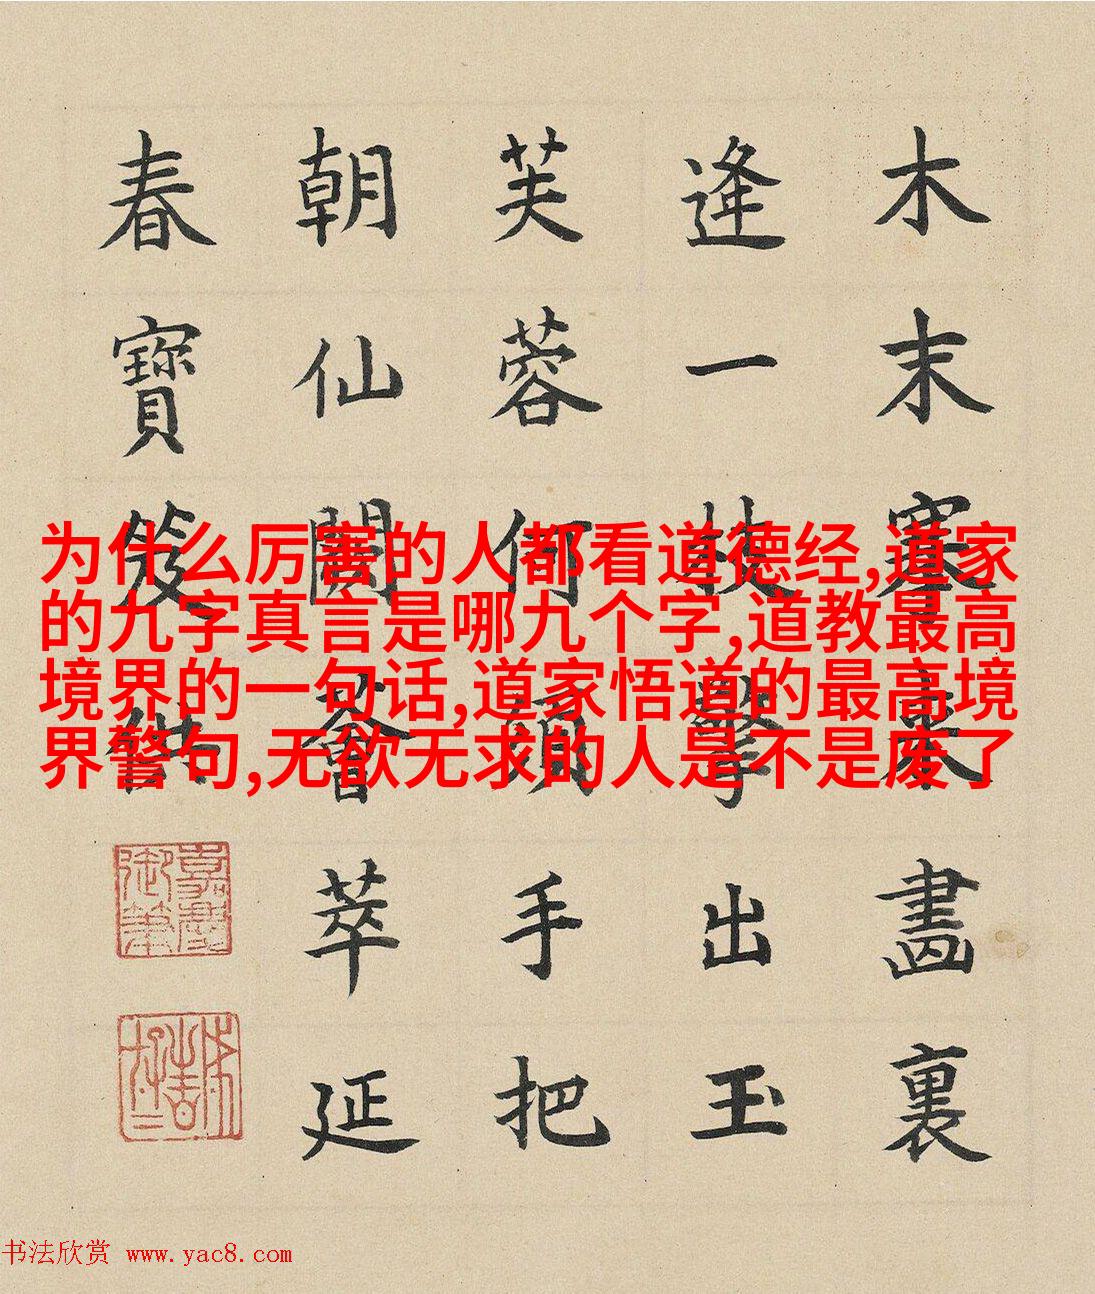 木末搴来畫裏
逢一枝擎出玉
芙蓉何須手把
朝仙闕薈萃延
春寶笈供
嘉慶
御筆
为什么厉害的人都看道德经,道家
的九字真言是哪九个字,道教最高
境界的一句话,道家悟道的最高境
界警句,无欲无求的人是不是废了
书法欣赏 www.yac8.com